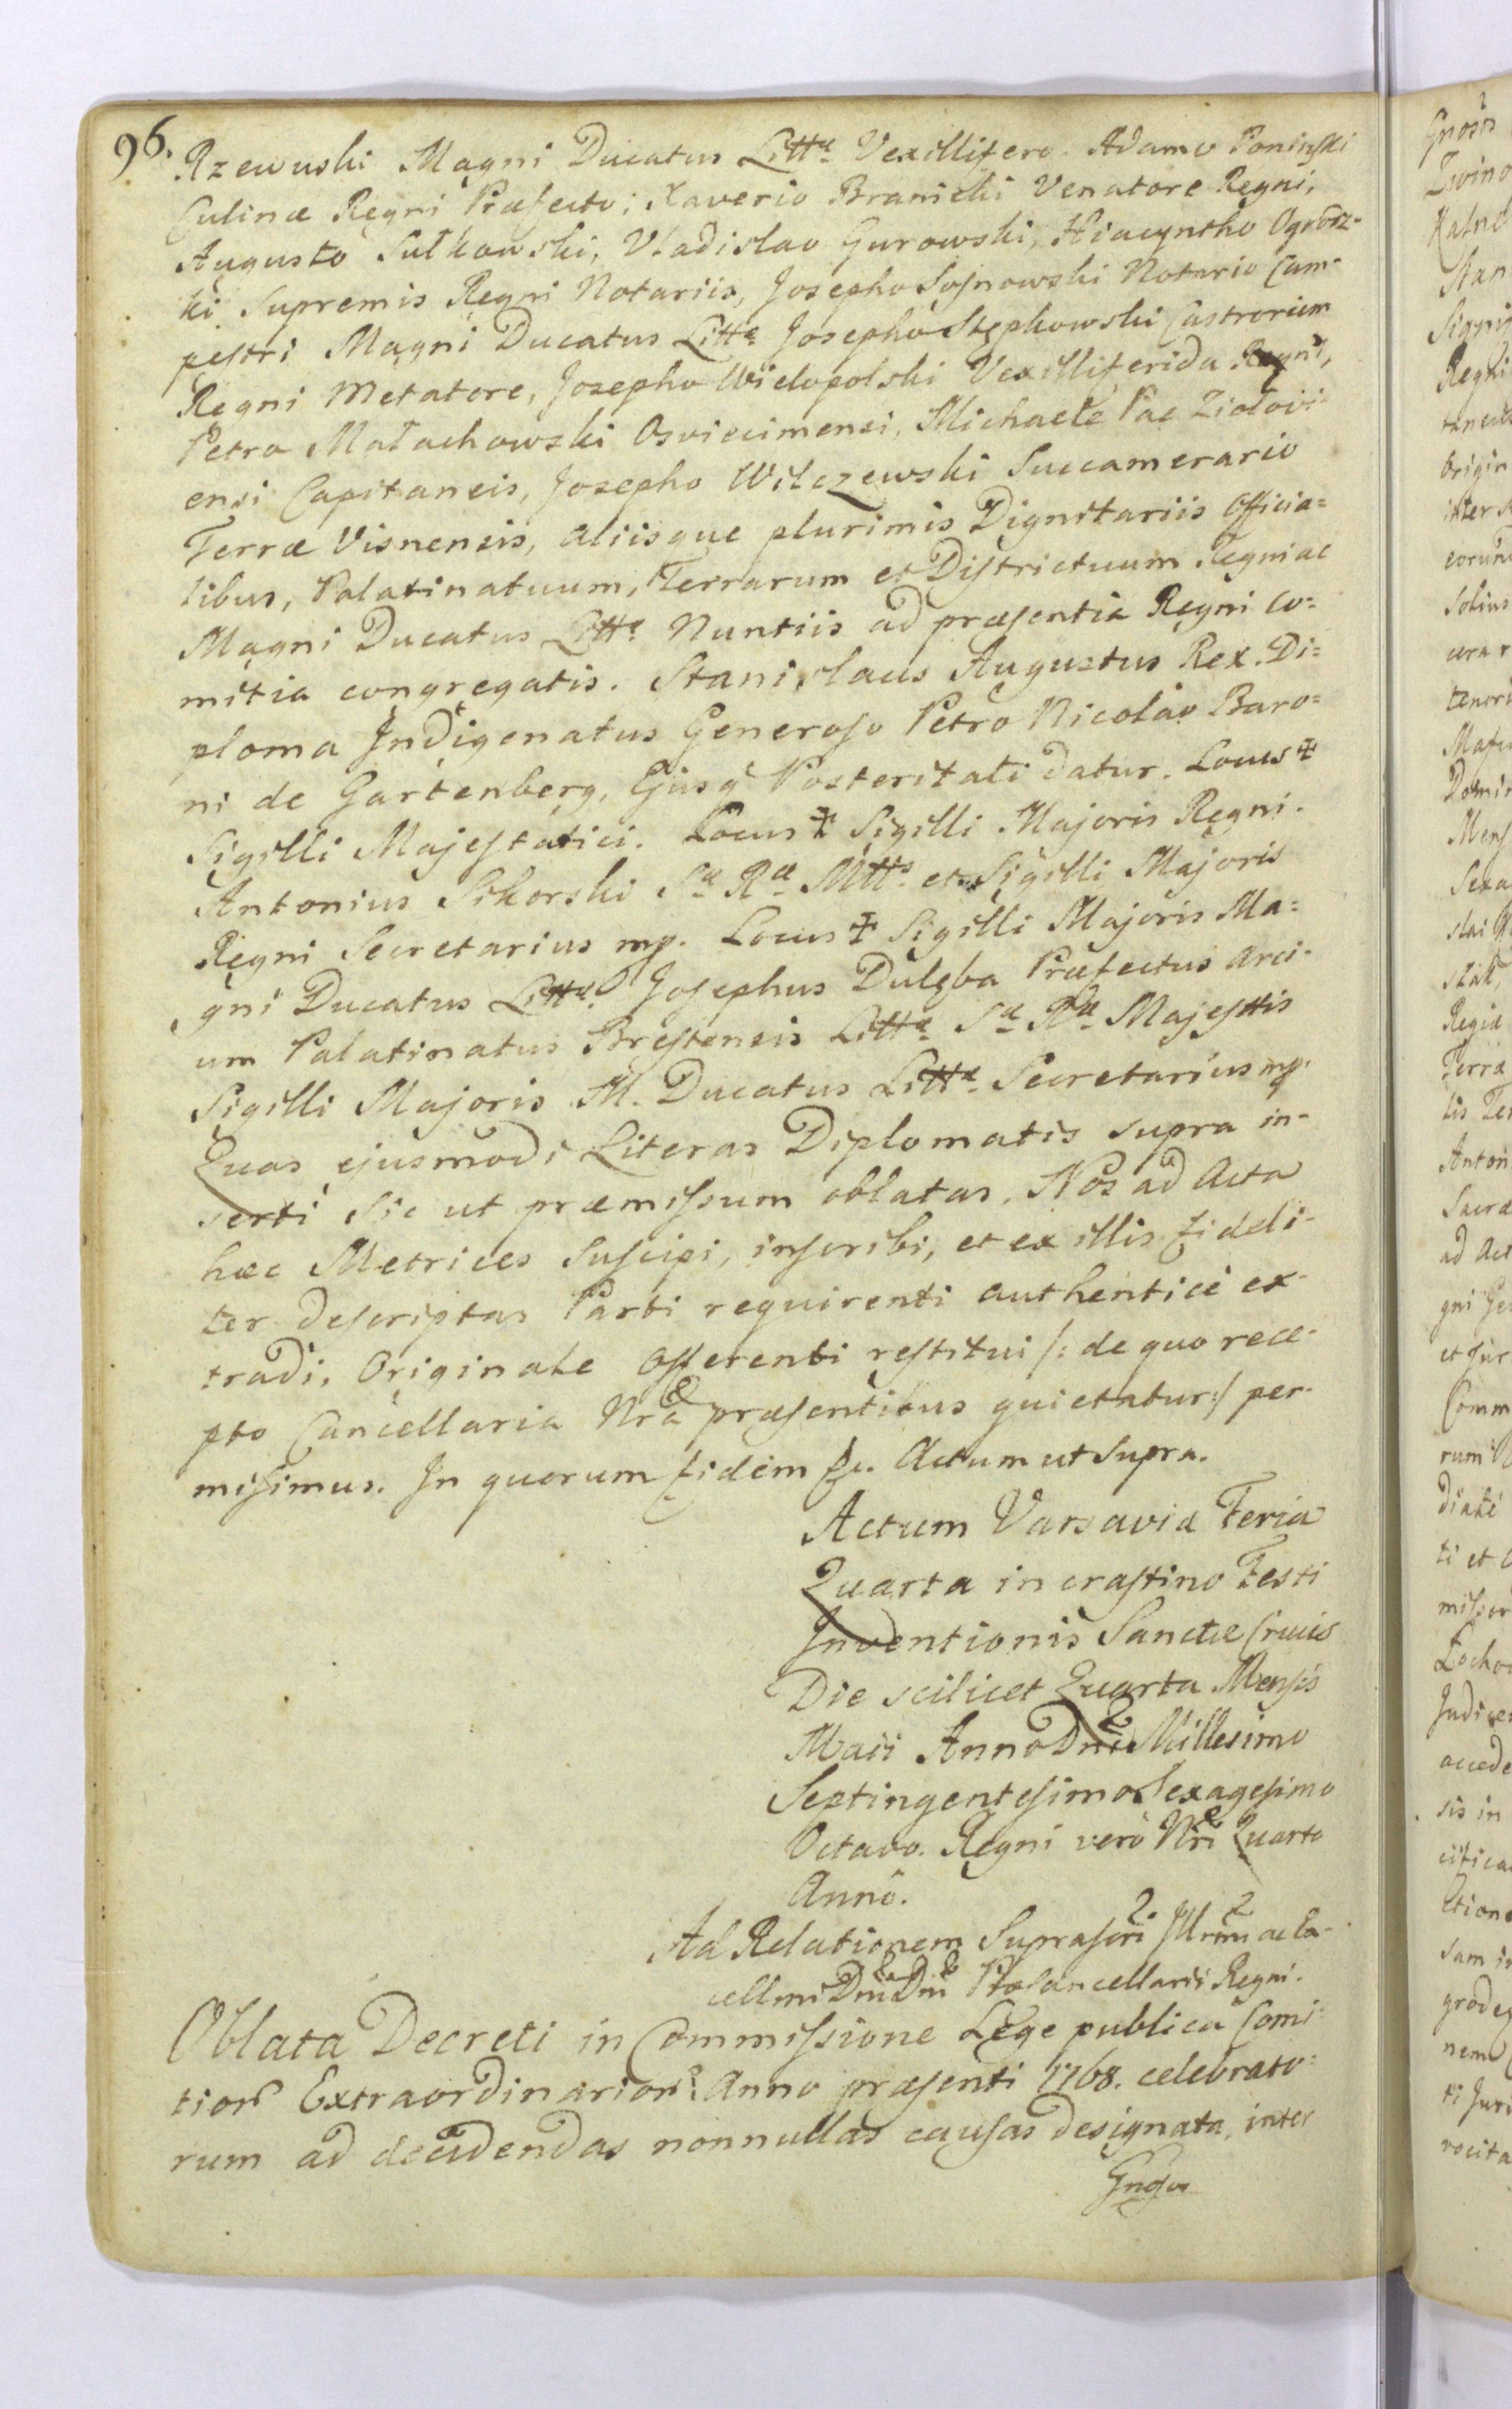 96.
Rzewuski Magni Ducatus Littæ Vexillifero. Adamo Poninski
Culinæ Regni Præfecto; Xaverio Branicki Venatore Regni,
Augusto Sułkowski, Vladislao Gurowski, Hiacyntho Ogrodz-
ki Supremis Regni Notariis, Josepho Soſnowski Notario Cam-
peſtri Magni Ducatus Littæ Josepho Stępkowski Castrorum
Regni Metatore, Josepho Wielopolski Vexilliferida Regni,
Petro Małachowski Osviecimensi, Michaele Pac Ziołovi-
ensi Capitaneis, Josepho Wilczewski Succamerario
Terræ Visnensis, aliisque plurimis Dignitariis Officia=
libus, Palatinatuum, Terrarum et Diſtrictuum Regni ac
Magni Ducatus Littæ Nuntiis ad præſentia Regni Co=
mitia congregatis. Staniſlaus Augustus Rex. Di=
ploma Indigenatus Generoſo Petro Nicolao Baro=
ni de Gartenberg, Ejusq́ Posteritati datur. Locus ✝
Sigilli Majeſtatici. Locus ✝ Sigilli Majoris Regni.
Antonius Sikorski Sæ Ræ Mttis et Sigilli Majoris
Regni Secretarius mp. Locus ✝ Sigilli Majoris Ma=
gni Ducatus Littæ. Joſephus Dulęba Præfectus Arci-
um Palatinatus Breſtensis Littæ Sæ Ræ Majeſttis
Sigilli Majoris M. Ducatus Littæ Secretarius mp.
Quas ejusmodi Literas Diplomatis supra in-
serti sic ut præmiſsum oblatas, Nos ad Acta
hæc Metrices Suſcipi, inſcribi, et ex illis fideli-
ter deſcriptas Parti requirenti authenticè ex-
tradi, Originale Offerenti reſtitui /: de quo rece-
pto Cancellaria Nra præſentibus quietatur :/ per-
miſimus. In quorum fidem &c. Actum ut Supra.
Actum Varsaviæ Feria
Quarta in craſtino Festi
Inventionis Sanctæ Crucis
Die scilicet Quarta Menſis
Maii Anno Dni Millesimo
Septingenteſimo Sexageſimo
Octavo. Regni verò Nri Quarto
Anno.
Ad Relationem Supraſcri Illrmi ac Ex-
cellmi Dni Dni ProCancellarii Regni.
Oblata Decreti in Commiſsione Lege publica Comi-
tior Extraordinarior: Anno præſenti 1768. celebrato=
rum ad decidendas nonnullas cauſas designata, inter
Gnoſos